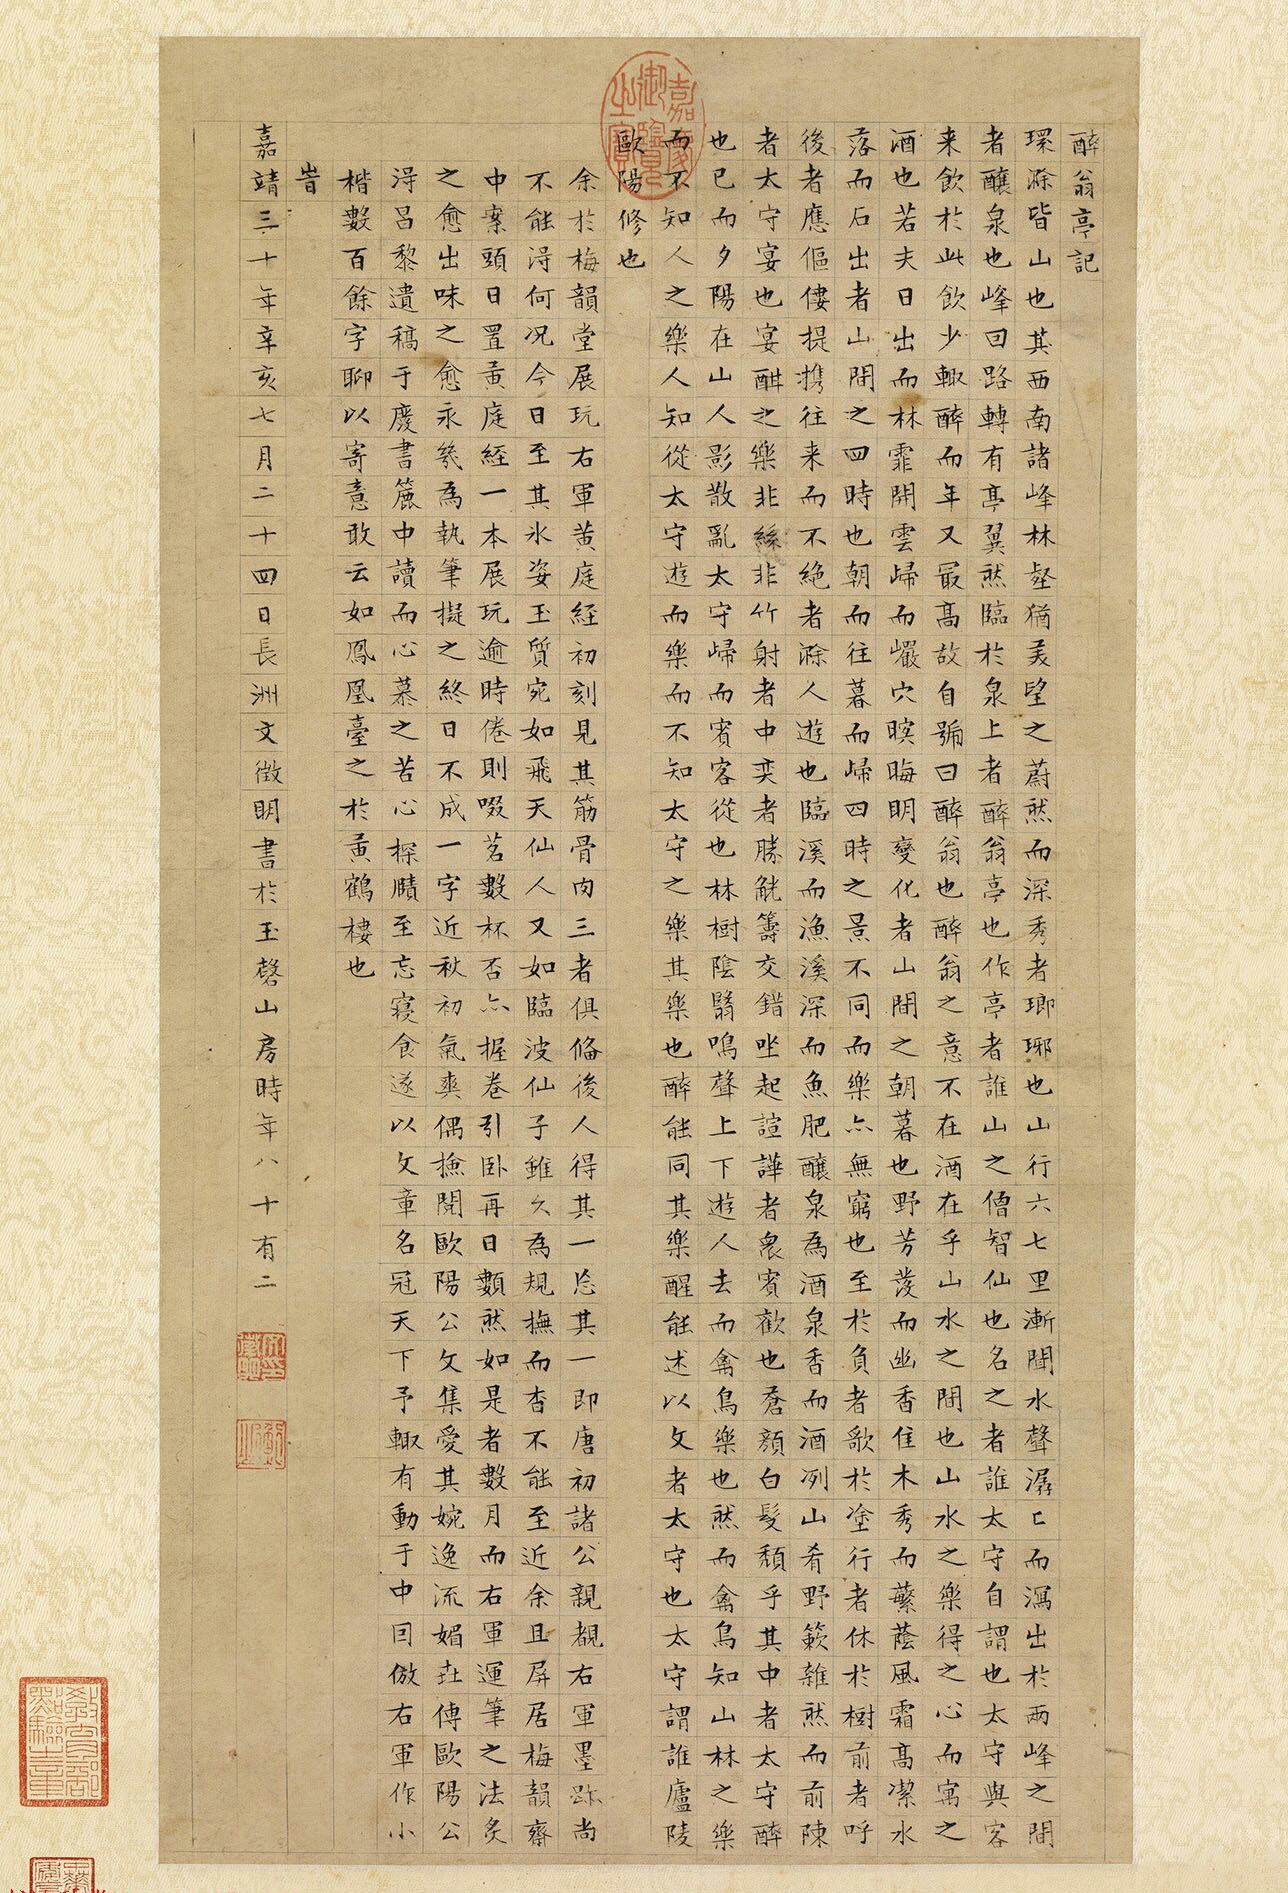 醉翁亭記
環滁皆山也其西南諸峰林壑猶美望之蔚然而深秀者瑯琊也山行六七里漸聞水聲潺〻而瀉出於兩峰之間
者釀泉也峰回路轉有亭翼然臨於泉上者醉翁亭也作亭者誰山之僧智仙也名之者誰太守自謂也太守與客
来飲於此飲少輒醉而年又最髙故自號曰醉翁也醉翁之意不在酒在乎山水之間也山水之樂得之心而寓之
酒也若夫日出而林霏開雲歸而巖穴暝晦明變化者山間之朝暮也野芳發而幽香佳木秀而蘩蔭風霜髙潔水
落而石出者山間之四時也朝而往暮而歸四時之景不同而樂亦無窮也至於負者歌於塗行者休於樹前者呼
後者應傴僂提攜往来而不絶者滁人遊也臨溪而漁溪深而魚肥釀泉為酒泉香而酒冽山肴野蔌雜然而前陳
者太守宴也宴酣之樂非絲非竹射者中奕者勝觥籌交錯坐起諠譁者衆賓歡也蒼顔白髮頹乎其中者太守醉
也已而夕陽在山人影散亂太守歸而賓客從也林樹陰翳鳴聲上下遊人去而禽鳥樂也然而禽鳥知山林之樂
而不知人之樂人知從太守遊而樂而不知太守之樂其樂也醉能同其樂醒能述以文者太守也太守謂誰廬陵
歐陽修也
余於梅韻堂展玩右軍黄庭經初刻見其筋骨肉三者俱備後人得其一忘其一即唐初諸公親覩右軍墨跡尚
不能淂何况今日至其氷姿玉質宛如飛天仙人又如臨波仙子雖久為規撫而杳不能至近余且屏居梅韻齋
中案頭日置黄庭經一本展玩逾時倦則啜茗數杯否亦握卷引卧再日顭然如是者數月而右軍運筆之法炙
之愈出味之愈永幾為執筆擬之終日不成一字近秋初氣爽偶撿閱歐陽公文集愛其婉逸流媚世傳歐陽公
淂昌黎遺稿于廢書簏中讀而心慕之苦心探賾至忘寢食遂以文章名冠天下予輒有動于中因倣右軍作小
楷數百餘字聊以寄意敢云如鳳凰臺之於黄鶴樓也
旹
嘉靖三十年辛亥七月二十四日長洲文徵明書於玉磬山房時年八十有二
嘉慶御覽之寶